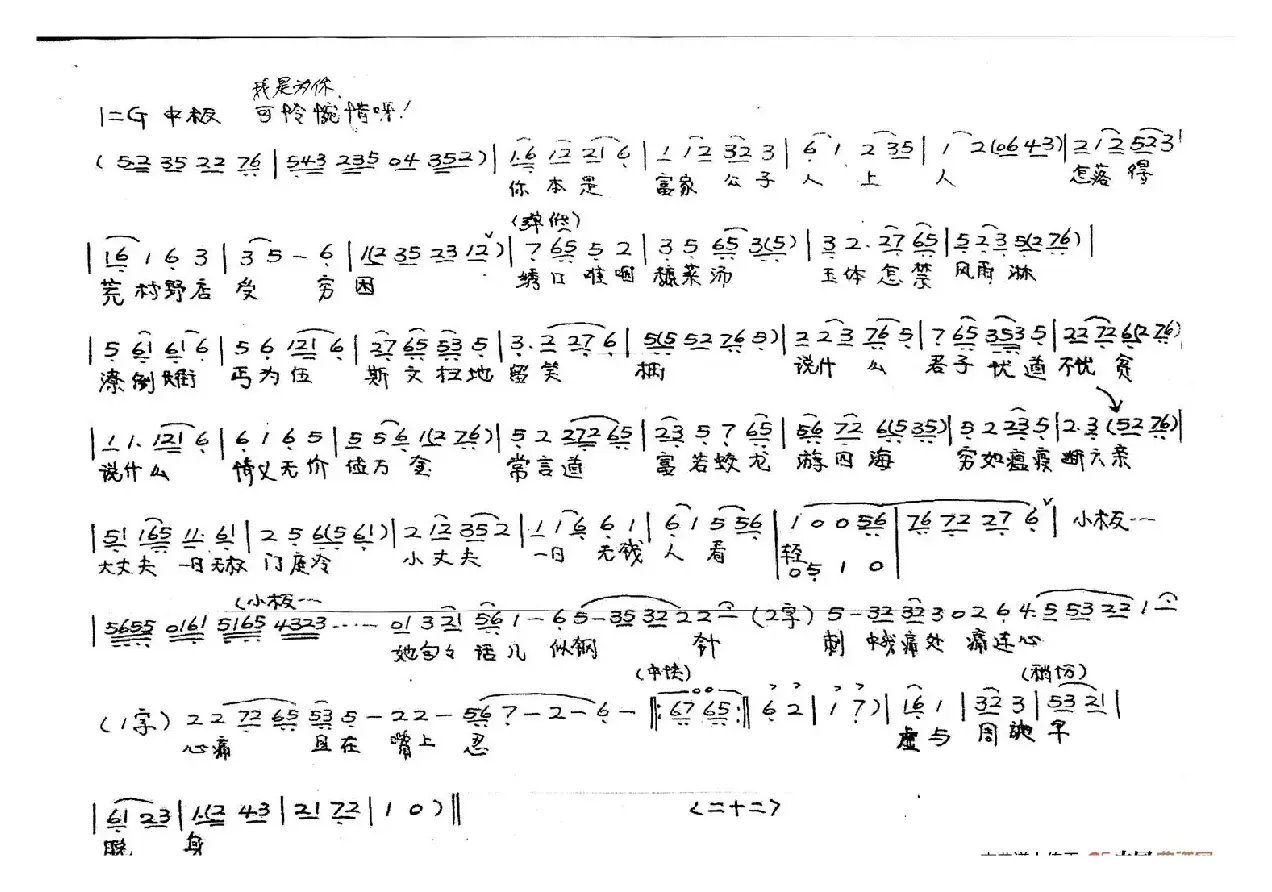 我是为你
1=G 中板 可怜惋惜呀!
(52 35 22 76 | 543 235 04 352) | 1.6 12 21 6 | 1 12 32 3 | 6 1 2 35 | 1 2(06 43) | 2 12 523 |
你本是 富家 公子 人 上 人 怎落得
| 16 1 6 3 | 3 5 - 6 | 1(2 35 23 12) | 7 65 5 2 | 3 5 65 3(5) | 3 2. 27 65 | 5 23 5(2 76) |
荒村野店 受 穷困 绣口 难咽 菜汤 玉体怎禁 风雨淋
| 5 61 61 6 | 5 6 121 6 | 27 65 53 5 | 3. 2 27 6 | 5(5 52 76 5) | 2 23 76 5 | 7 65 353 5 | 22 72 6(2 76)
潦倒 街 丐为伍 斯文扫地 留笑 柄 说什么 君子忧道不忧贫
| 1 1. 121 6 | 6 1 6 5 | 5 56 1(2 76) | 5 2 272 65 | 23 5 7 65 | 56 72 6(5 35) | 5 2 23 5 | 2. 3 (52 76) |
说什么 情义无价值万金 常言道 富若蛟龙游四海 穷如瘟疫断六亲
| 51 165 11. 61 | 2 5 6(5 61) | 2 12 35 2 | 1 16 6 1 | 6 1 5 56 | 1 0 0 56 | 76 72 27 6 | 小板…
大丈夫 一日无权 门庭冷 小丈夫 一日 无钱 人看 轻
05 1 0
(小板…
| 5655 0161 5165 4323 …… 01 3 21 56 1 - 6 5 - 35 32 2 2 - (2字) 5 - 32 32 3 0 2 6 4. 5 53 22 1 -
她句句 话儿 似钢 针 刺 痛处 痛连心
(中快) (稍慢)
(1字) 2 2 72 65 53 5 - 2 2 - 56 7 - 2 - 6 - ‖: 67 65 :‖ 6 2 | 1 7) | 16 1 | 32 3 | 53 21 |
心痛 且在 嘴上 忍 虚与 周 早
| 61 23 | 1.(2 43 | 21 72 | 1 0) ‖ <二十二>
脱 身